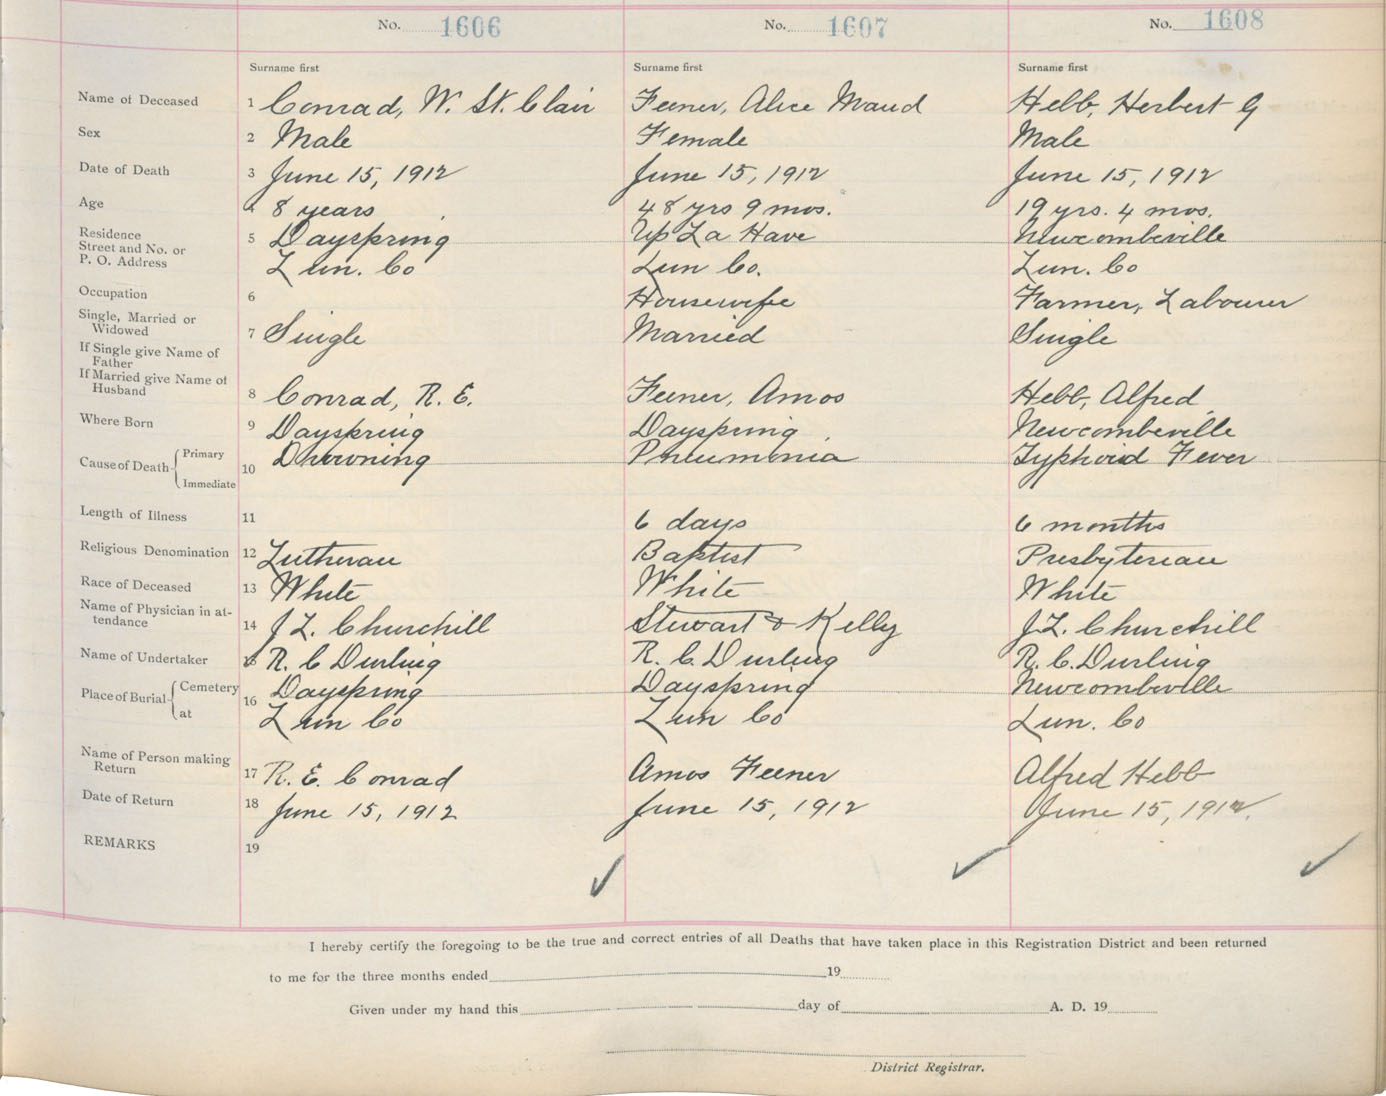 No. 1606 No. 1607 No. 1608
Surname first Surname first Surname first
Name of Deceased 1 Conrad, W. St. Clair Feener, Alice Maud Hebb, Herbert G
Sex 2 Male Female Male
Date of Death 3 June 15, 1912 June 15, 1912 June 15, 1912
Age 4 8 years 48 yrs 9 mos. 19 yrs. 4 mos.
Residence
Street and No. or
P. O. Address
5 Dayspring Up La Have Newcombeville
Lun. Co Lun Co. Lun. Co
Occupation 6 Housewife Farmer, Labourer
Single, Married or
Widowed
7 Single Married Single
If Single give Name of
Father
If Married give Name of
Husband
8 Conrad, R. E. Feener, Amos Hebb, Alfred
Where Born 9 Dayspring Dayspring Newcombeville
Cause of Death Primary
Immediate
10 Drowning Pneumonia Typhoid Fever
Length of Illness 11 6 days 6 months
Religious Denomination 12 Lutheran Baptist Presbyterian
Race of Deceased 13 White White White
Name of Physician in at-
tendance
14 J. L. Churchill Stewart & Kelly J. L. Churchill
Name of Undertaker 15 R. C Durling R. C. Durling R. C. Durling
Place of Burial Cemetery
at
16 Dayspring Dayspring Newcombeville
Lun Co Lun Co Lun. Co
Name of Person making
Return
17 R. E. Conrad Amos Feener Alfred Hebb
Date of Return 18 June 15, 1912 June 15, 1912 June 15, 1912.
REMARKS 19
I hereby certify the foregoing to be the true and correct entries of all Deaths that have taken place in this Registration District and been returned
to me for the three months ended 19
Given under my hand this day of A. D. 19
District Registrar.